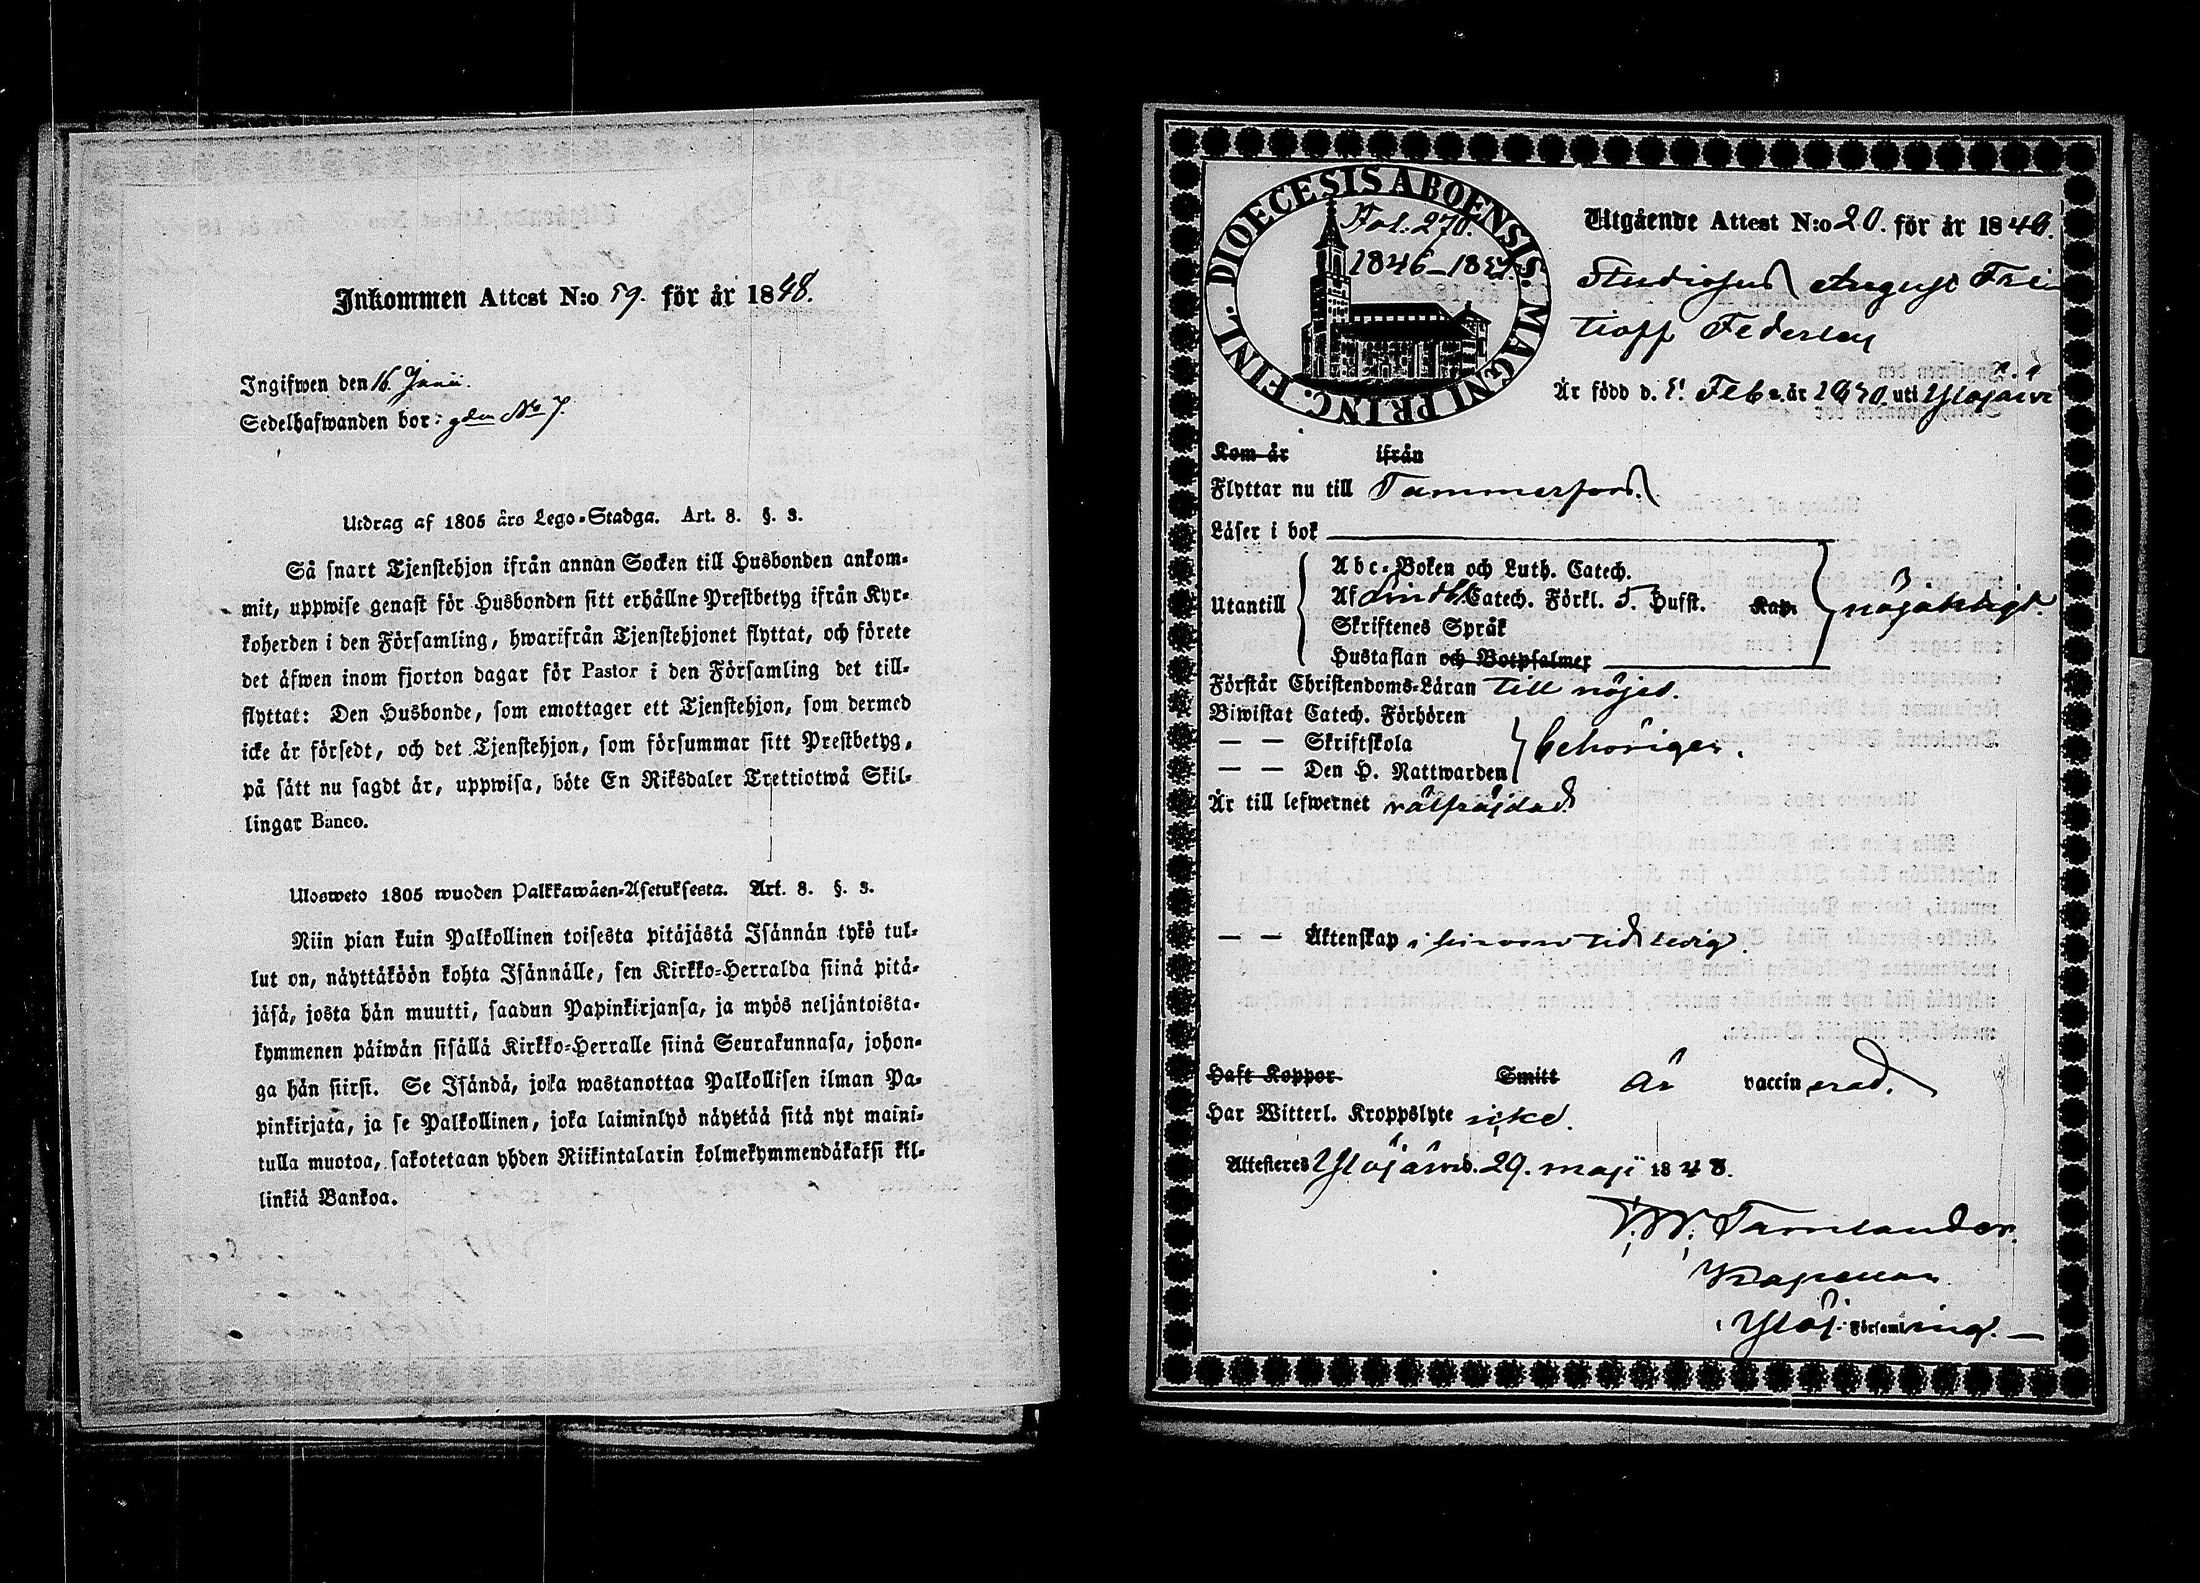 Inkommen Attest N:o 59. för år 1848.
Ingifwen den 16 Junii.
Sedelhafwanden bor: gden No 7.
Utdrag af 1805 års Lego-Stadga. Art. 8. §. 3.
Så snart Tjenstehjon ifrån annan Socken till Husbonden ankom-
mit, uppwise genast för Husbonden sitt erhållne Prestbetyg ifrån Kyr-
koherden i den Församling, hwarifrån Tjenstehjonet flyttat, och förete
det äfwen inom fjorton dagar för Pastor i den Församling det till-
flyttat: Den Husbonde, som emottager ett Tjenstehjon, som dermed
icke är försedt, och det Tjenstehjon, som försummar sitt Prestbetyg,
på sätt nu sagdt är, uppwisa, böte En Riksdaler Trettiotwå Skil-
lingar Banco.
Ulosweto 1805 wuoden Palkkawäen-Asetuksesta. Art. 8. §. 3.
Niin pian kuin Palkollinen toisesta pitäjästä Isännän tykö tul-
lut on, näyttäköön kohta Isännälle, sen Kirkko-Herralda siinä pitä-
jäsä, josta hän muutti, saadun Papinkirjansa, ja myös neljäntoista-
kymmenen päiwän sisällä Kirkko-Herralle siinä Seurakunnasa, johon-
ga hän siirsi. Se Isändä, joka wastanottaa Palkollisen ilman Pa-
pinkirjata, ja se Palkollinen, joka laiminlyö näyttää sitä nyt maini-
tulla muotoa, sakotetaan yhden Riikintalarin kolmekymmendäkaksi kil-
linkiä Bankoa.
DIOECESIS ABOENSIS. MAGNI PRINC. FINL.
Fol. 270.
1846-1852
Utgående Attest N:o 20. för år 1848.
Studiosus August Fri
tioff Federley
Är född d. 5. Feb. år 1830. uti Ylöjärvi
Kom år ifrån
Flyttar nu till Tammerfors.
Läser i bok
Utantill
Abc-Boken och Luth. Catech.
Af Lindh. Catech. Förkl. 5. Hufst. Kap.
Skriftenes Språk
Hustaflan och Botpsalmer
nöjaktigt.
Förstår Christendoms-Läran till nöjes.
Biwistat Catech. Förhören
— — Skriftskola
— — Den H. Nattwarden
behörigen.
Är till lefwernet välfräjdad
— — Äktenskap i hinvarotid ledig.
Haft Koppor Smitt är vaccinerad.
Har Witterl. Kroppslyte icke.
Attesteres Ylöjärvi d. 29. maji 1848.
Tamlander.
Kapellan
i Ylöj. Församling. —